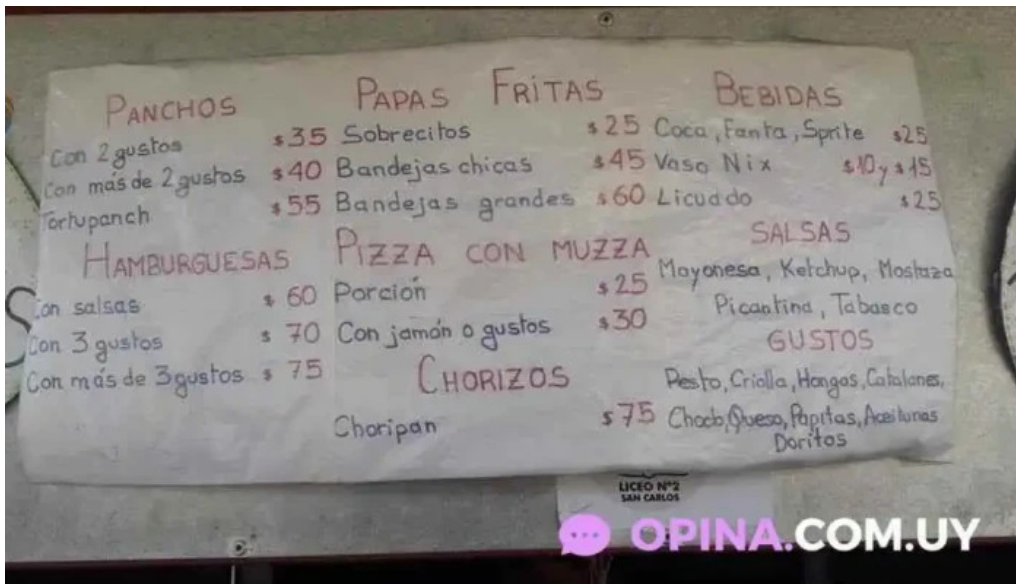 PANCHOS
Con 2 gustos $35
Con más de 2 gustos $40
Tortupanch $55
HAMBURGUESAS
Con salsas $60
Con 3 gustos $70
Con más de 3 gustos $75
PAPAS FRITAS
Sobrecitos $25
Bandejas chicas $45
Bandejas grandes $60
PIZZA CON MUZZA
Porción $25
Con jamón o gustos $30
CHORIZOS
Choripan $75
BEBIDAS
Coca, Fanta, Sprite $25
Vaso Nix $10 y $15
Licuado $25
SALSAS
Mayonesa, Ketchup, Mostaza
Picantina, Tabasco
GUSTOS
Pesto, Criolla, Hongos, Catalanes,
Choclo, Queso, Papitas, Aceitunas
Doritos
LICEO N°2
SAN CARLOS
OPINA.COM.UY